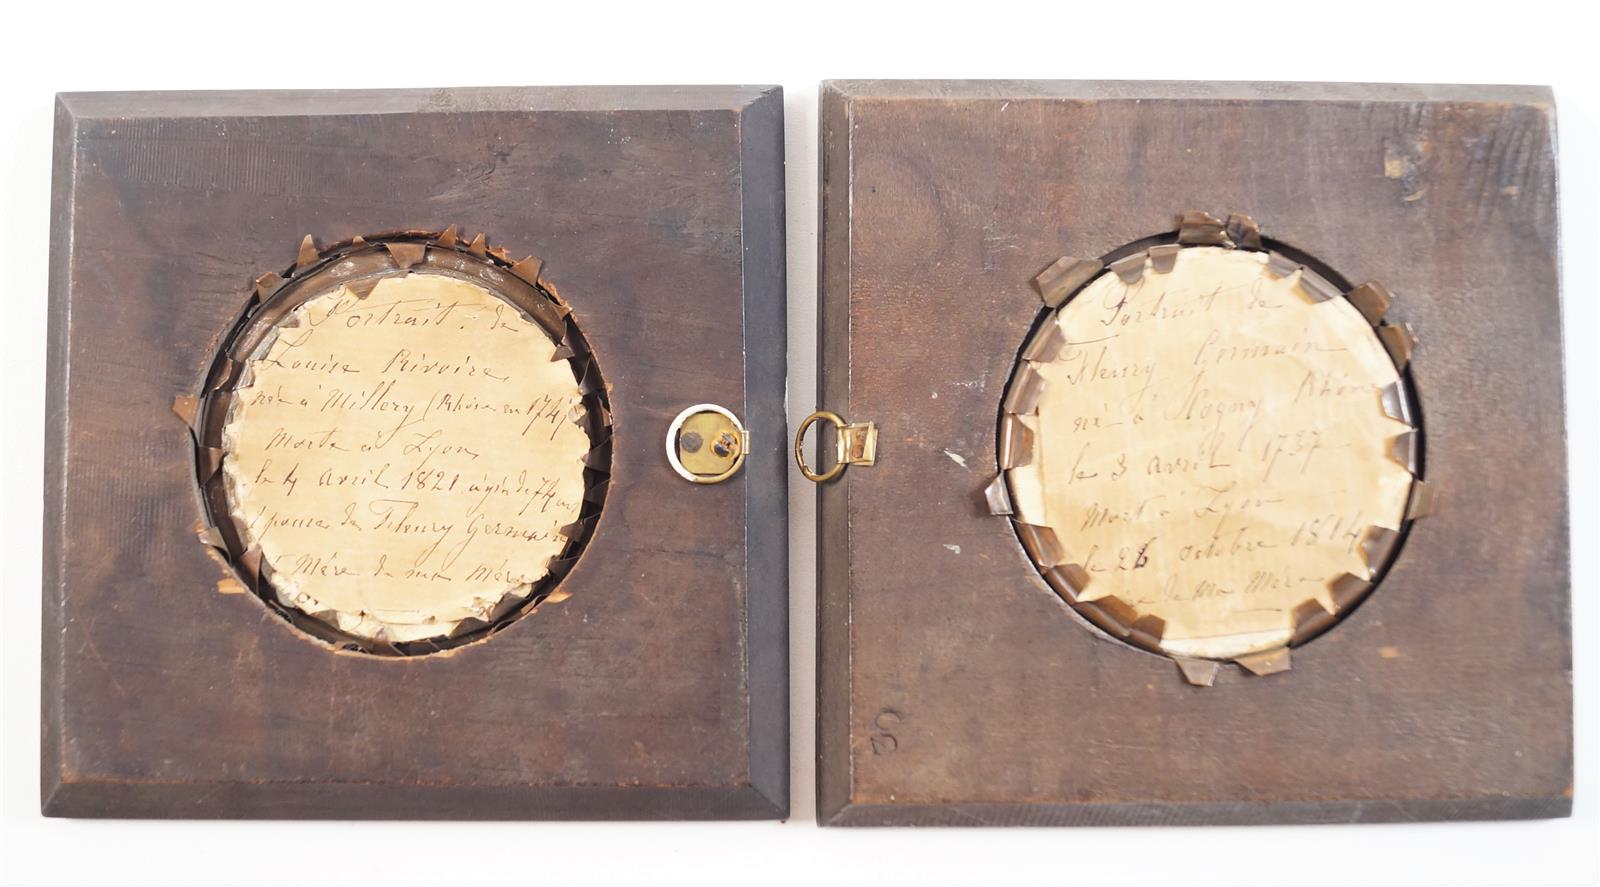 Portrait de
Louise Rivoire
née à Millery (Rhône en 1747
Morte à Lyon
le 4 avril 1821 agée de 74 ans
Epouse de Fleury Germain
Mère de ma Mère
Portrait de
Fleury Germain
né à Rhône
le 3 avril 1737
Mort à Lyon
le 26 octobre 1814
de Ma Mère
30